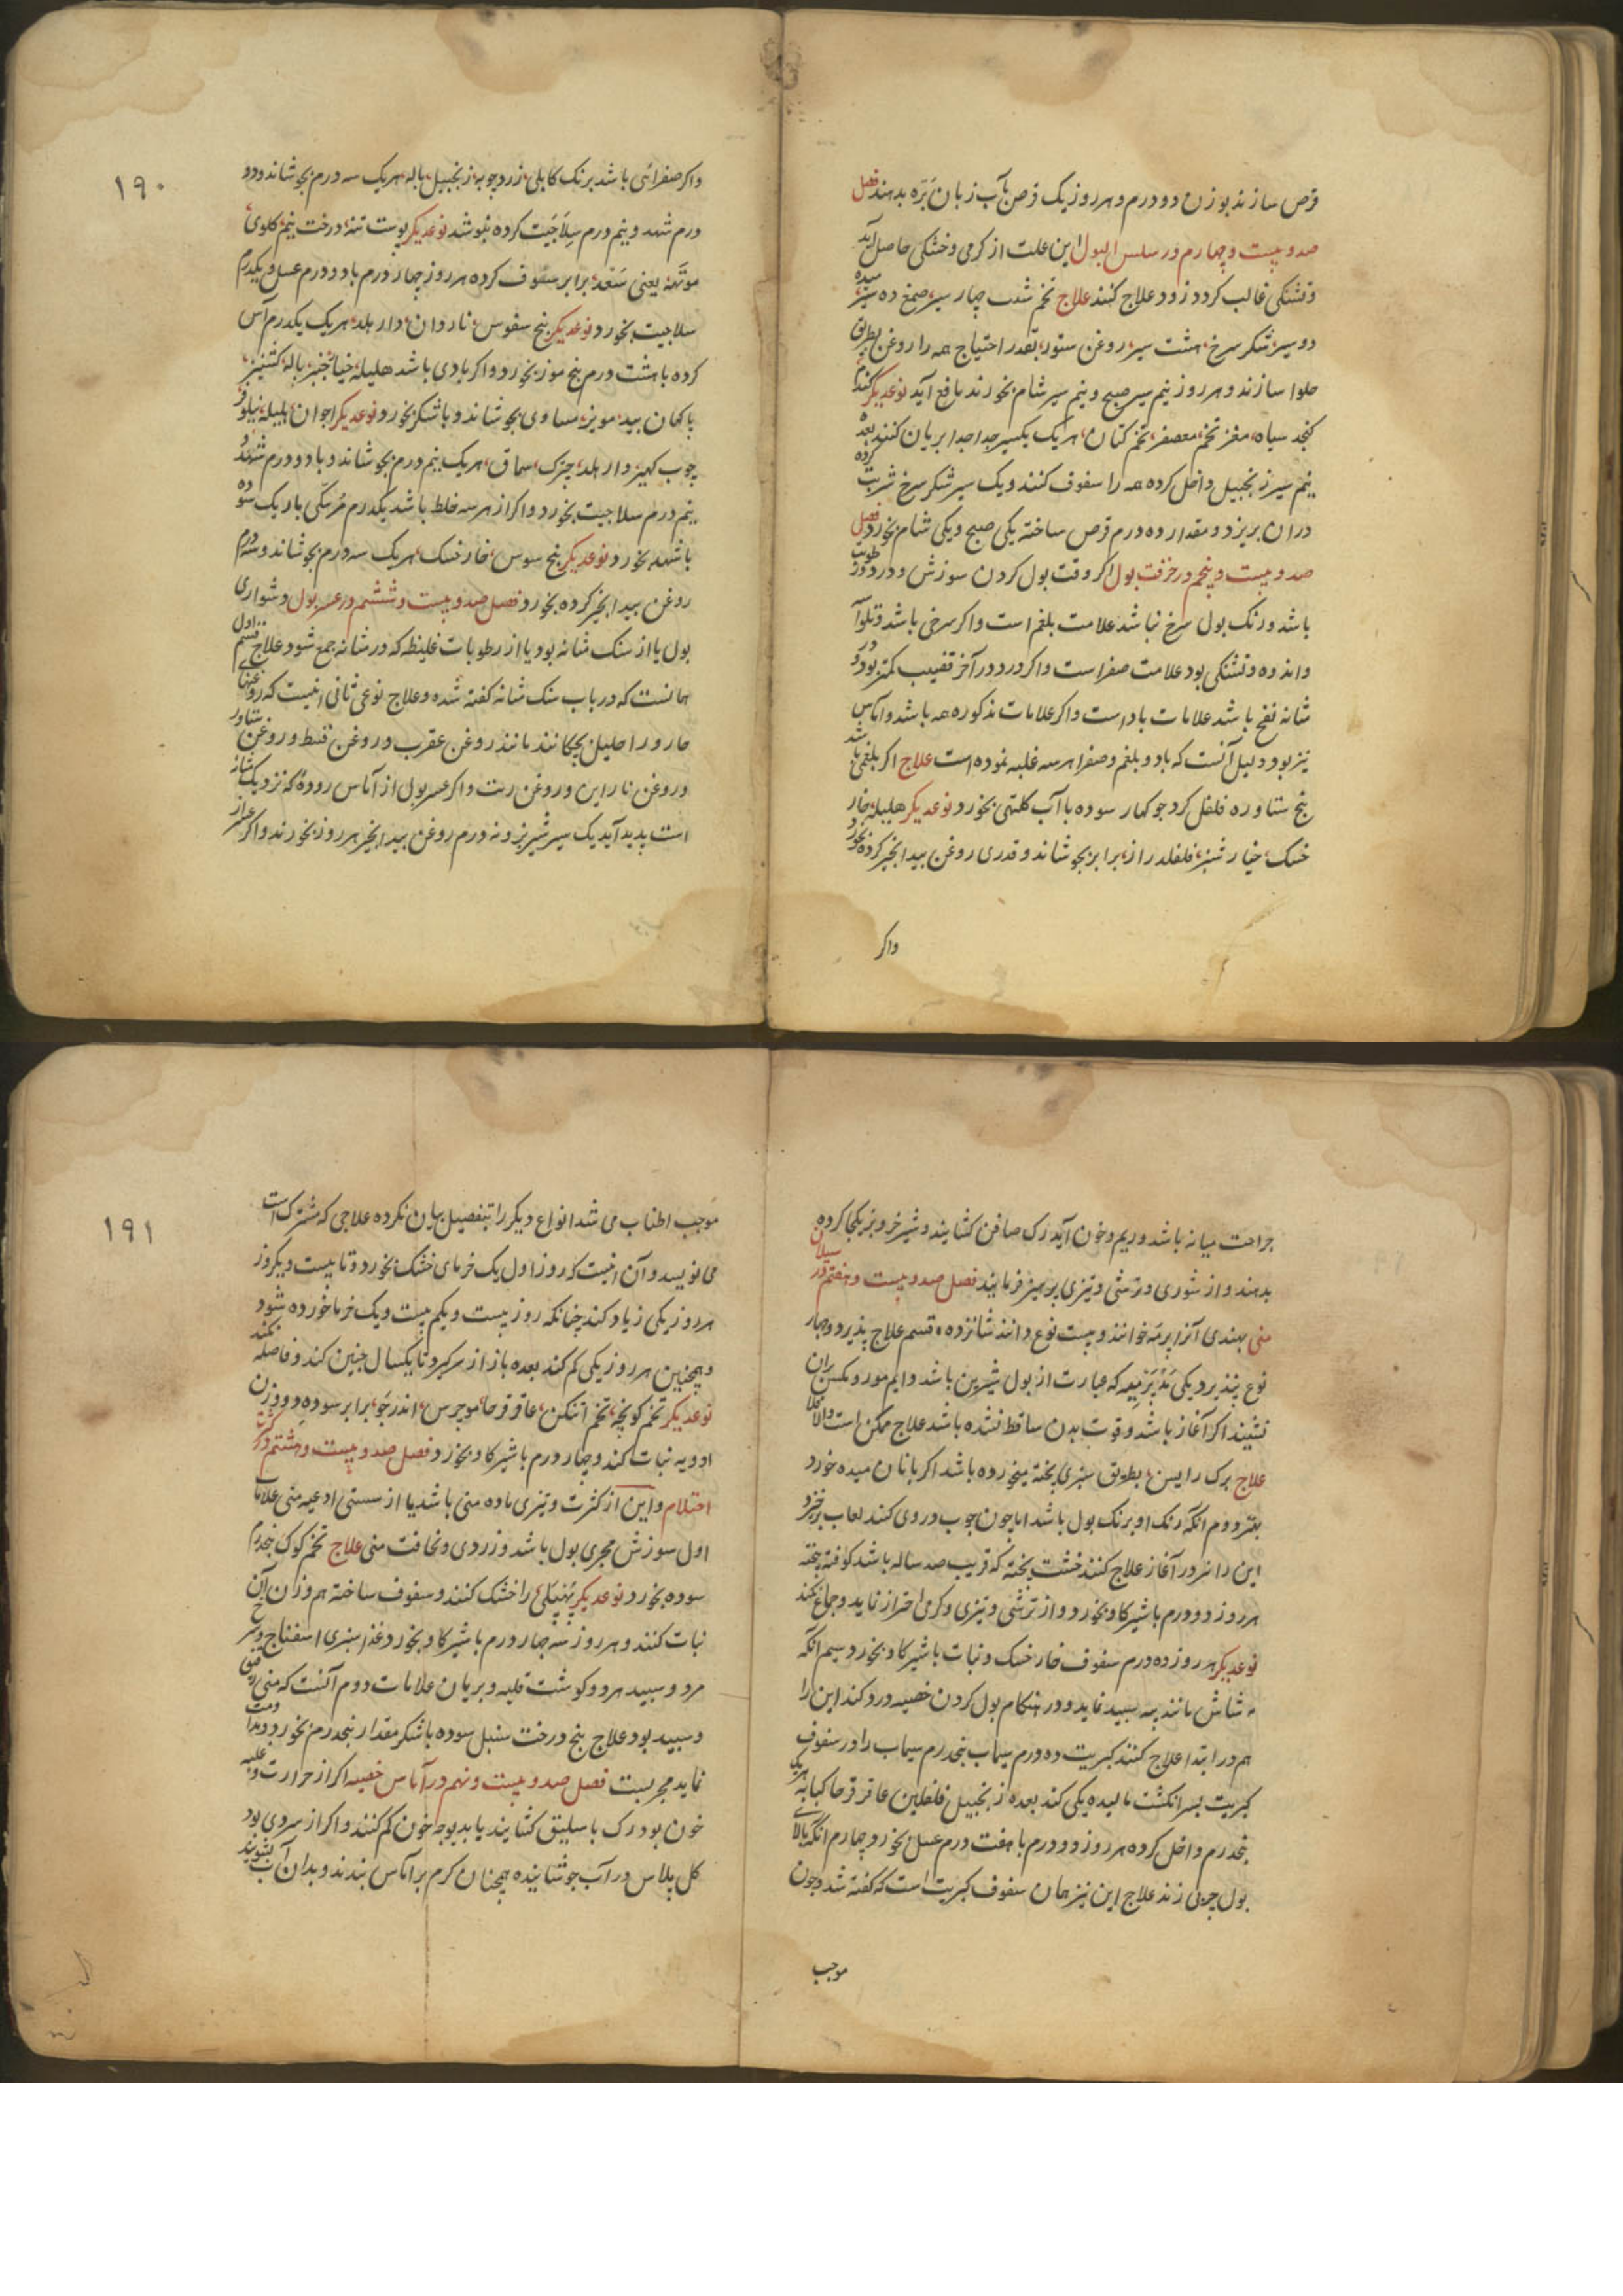 قرص سازند بوزن دو درم و هر روز یک قرص بآب زبان بره بدهند فصل
صد و بیست و چهارم در سلس البول این علت از کرمی و خشکی حاصل آید
و تشنکی غالب کردد زود علاج کنند علاج تخم شبت چهار سیر، صمغ ده سیر، میده
دو سیر، شکر سرخ، هشت سیر، روغن ستور، بقدر احتیاج همه را روغن بطریق
حلوا سازند و هر روز نیم سیر صبح و نیم سیر شام بخورند نافع آید نوعدیکر
کنجد سیاه، مغز تخم معصفر، تخم کتان، هر یک یکسیر جدا جدا بریان کنند بعده
نیم سیر زنجبیل داخل کرده همه را سفوف کنند و یک سیر شکر سرخ شربت کرده
دران بریزد و مقدار ده درم قرص ساخته یکی صبح و یکی شام بخورد فصل
صد و بیست و پنجم در حرقت بول اکر وقت بول کردن سوزش و درد
باشد و رنک بول سرخ نباشد علامت بلغم است و اکر سرخی باشد و تلوآسه
واندوه و تشنکی بود علامت صفراست و اکر درد در آخر قضیب کمتر بود و در
مثانه نفخ باشد علامات باد است و اکر علامات مذکوره همه باشد و آماس
نیز بود دلیل آنست که باد و بلغم و صفرا هر سه غلبه نموده است علاج اکر بلغمی باشد
بیخ ستاوره فلفل کرد جوکهار سوده باآب کلتهی بخورد نوعدیکر هلیله، خار
خسک، خیار شنبر، فلفلدراز، برابر بجوشاند و قدری روغن بیدانجیر کرده بخورد
واکر
۱۹۰
واکر صفرائی باشد برنک کابلی، زردچوبه، زنجبیل، باله، هر یک سه درم بجوشاند و دو
درم شهد و نیم درم سلاجیت کرده بنوشد نوعدیکر پوست تنه، درخت نیم، کلوی،
موتهه، یعنی سعد، برابر سفوف کرده هر روز چهار درم با دو درم عسل و یکدرم
سلاجیت بخورد نوعدیکر بیخ سفوس، ناروان، دار هلد، هر یک یکدرم آس
کرده با هشت درم بیخ موز بخورد و اکر بادی باشد هلیله، خیارشنبر، باله، کشنیز،
باکهان بید، مویز، مساوی بجوشاند و با شکر بخورد نوعدیکر اجوان، بلیله، نیلوفر،
چوب کهیر، دار هلد، چترک، سماق، هر یک نیم درم بجوشاند و با دو درم شهد و
نیم درم سلاجیت بخورد و اکر از هر سه خلط باشد یکدرم مرمکی باریک سوده
باشهد بخورد نوعدیکر بیخ سوس، خار خسک، هر یک سه درم بجوشاند و سه درم
روغن بیدانجیر کرده بخورد فصل صد و بیست و ششم در عسر بول و شواری
بول یا از سنک مثانه بود یا از رطوبات غلیظه که در مثانه جمع شود علاج قسم اول
همانست که در باب سنک مثانه کفته شده و علاج نوعی ثانی اینست که روغنهای
حار در احلیل بچکانند مانند روغن عقرب و روغن قسط و روغن ستاور
و روغن ناراین و روغن رت و اکر عسر بول از آماس روده که نزدیک مثانه
است پدید آید یک سیر شیر بز و نه درم روغن بیدانجیر هر روز بخورند و اکر عسر از
جراحت مثانه باشد و ریم و خون آید رک صافن کشایند و شیر خر و بز یکجا کرده
بدهند و از شوری و ترشی و تیزی پرهیز فرمایند فصل صد و بیست و هفتم در سیلان
منی بهندی آنرا پرمه خوانند و بیست نوع دانند شانزده قسم علاج پذیرد و چهار
نوع نپذیرد یکی که عبارت از بول شیرین باشد و دایم مور و مکس بران
نشیند اکر آغاز باشد و قوت بدن ساقط نشده باشد علاج ممکن است والا فلا
علاج برک رایسن، بطریق سبزی پخته میخورده باشد اکر بانان میده خورد
بهتر دوم انکه رنک او برنک بول باشد اما چون چوب در وی کنند لعاب برخیزد
این را نیز در آغاز علاج کنند خشت پخته که قریب صد ساله باشد کوفته بیخته
هر روز دو درم باشیر کاو بخورد و از ترشی و تیزی و کرمی احتراز نماید و جماع نکند
نوعدیکر هر روز ده درم سفوف خار خسک و نبات باشیر کاو بخورد سیم انکه
شاش مانند پیه سپید نماید و در هنکام بول کردن خصیه درد کند این را
هم در ابتدا علاج کنند کبریت ده درم سیماب پنجدرم سیماب را در سفوف
کبریت بسر انکشت مالیده یکی کند بعده زنجبیل، فلفلین، عاقرقرحا، کبابه هر یک
پنجدرم داخل کرده هر روز دو درم با هفت درم عسل بخورد چهارم انکه بالای
بول چربی زند علاج این نیز همان سفوف کبریت است که کفته شد و چون
موجب
۱۹۱
موجب اطناب می شد انواع دیکر را بتفصیل بیان نکرده علاجی که مشترک است
می نویسد و آن اینست که روز اول یک خرمای خشک بخورد و تا بیست و یکروز
هر روز یکی زیاد کند چنانکه روز بیست و یکم بیست و یک خرما خورده شود
و همچنین هر روز یکی کم کند بعده باز از سر کیرد تا یکسال چنین کند و فاصله نکند
نوعدیکر تخم کونچه، تخم اتنکن، عاقرقرحا، موچرس، اندرجو، برابر سوده دو وزن
ادویه نبات کند و چهار درم باشیر کاو بخورد فصل صد و بیست و هشتم در کثرت
احتلام و این از کثرت و تیزی ماده منی باشد یا از سستی اوعیه منی علامات
اول سوزش مجری بول باشد و زردی و نحافت منی علاج تخم کوک پنجدرم
سوده بخورد نوعدیکر را خشک کنند و سفوف ساخته هم وزن آن
نبات کنند و هر روز سه چهار درم باشیر کاو بخورد و غذا سبزی اسفناج و سرخ
مرد و سپید مرد و کوشت قلیه و بریان علامات دوم آنست که منی رقیق
و سپید بود علاج بیخ درخت سنبل سوده باشکر مقدار پنجدرم بخورد و مداومت
نماید مجربست فصل صد و بیست و نهم در آماس خصیه اکر از حرارت و غلبه
خون بود رک باسلیق کشایند یا بدیوچه خون کم کنند و اکر از سردی بود
کل پلاس در آب جوشانیده همچنان کرم بر آماس بندند و بدان آب بشویند